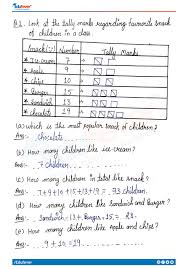 Edulever
Q1. Look at the tally marks regarding favourite snack
of children in a class.
Snack Number Tally Marks
Ice-cream 7
Apple 9
Chips 10
Burger 15
Sandwich 13
chocolate 19
(a) which is the most popular snack of children?
Ans:- chocolate
(b) How many children like ice-cream?
Ans:- 7 children
(c) How many children in total like snack?
Ans:- 7+9+10+15+13+19 = 93 children.
(d) How many children like Sandwich and Burger?
Ans:- Sandwich 13 + Burger 15 = 28.
(e) How many children like Apple and chips?
Ans:- 9 + 10 = 19